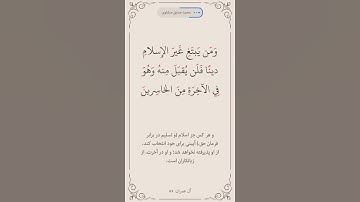 وَمَن يَبتَغِ غَيرَ الإِسلامِ
دينًا فَلَن يُقبَلَ مِنهُ وَهُوَ
فِي الآخِرَةِ مِنَ الخاسِرينَ
و هر کس جز اسلام (و تسلیم در برابر
فرمان حق،) آیینی برای خود انتخاب کند،
از او پذیرفته نخواهد شد؛ و او در آخرت، از
زیانکاران است.
آل عمران